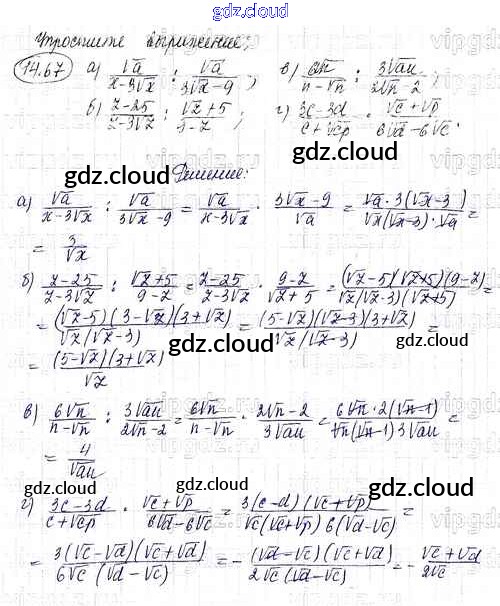 gdz.cloud
Упростите выражение:
14.67 а) √a/(x-3√x) : √a/(3√x-9); в) 6√n/(n-√n) : 3√au/(2√n-2);
б) (z-25)/(z-3√z) : (√z+5)/(9-z); г) (3c-3d)/(c+√cp) · (√c+√p)/(6√d-6√c).
gdz.cloud
Решение:
gdz.cloud
а) √a/(x-3√x) : √a/(3√x-9) = √a/(x-3√x) · (3√x-9)/√a = √a·3(√x-3)/(√x(√x-3)·√a) =
= 3/√x
gdz.cloud
б) (z-25)/(z-3√z) : (√z+5)/(9-z) = (z-25)/(z-3√z) · (9-z)/(√z+5) = (√z-5)(√z+5)(9-z)/(√z(√z-3)(√z+5)) =
= (√z-5)(3-√z)(3+√z)/(√z(√z-3)) = (5-√z)(√z-3)(3+√z)/(√z(√z-3)) =
gdz.cloud
= (5-√z)(3+√z)/√z
в) 6√n/(n-√n) : 3√au/(2√n-2) = 6√n/(n-√n) · (2√n-2)/(3√au) = 6√n·2(√n-1)/(√n(√n-1)3√au) =
= 4/√au
gdz.cloud
gdz.cloud
г) (3c-3d)/(c+√cp) · (√c+√p)/(6√d-6√c) = 3(c-d)(√c+√p)/(√c(√c+√p)6(√d-√c)) =
= 3(√c-√d)(√c+√d)/(6√c(√d-√c)) = -(√d-√c)(√c+√d)/(2√c(√d-√c)) = -(√c+√d)/(2√c)
gdz.cloud